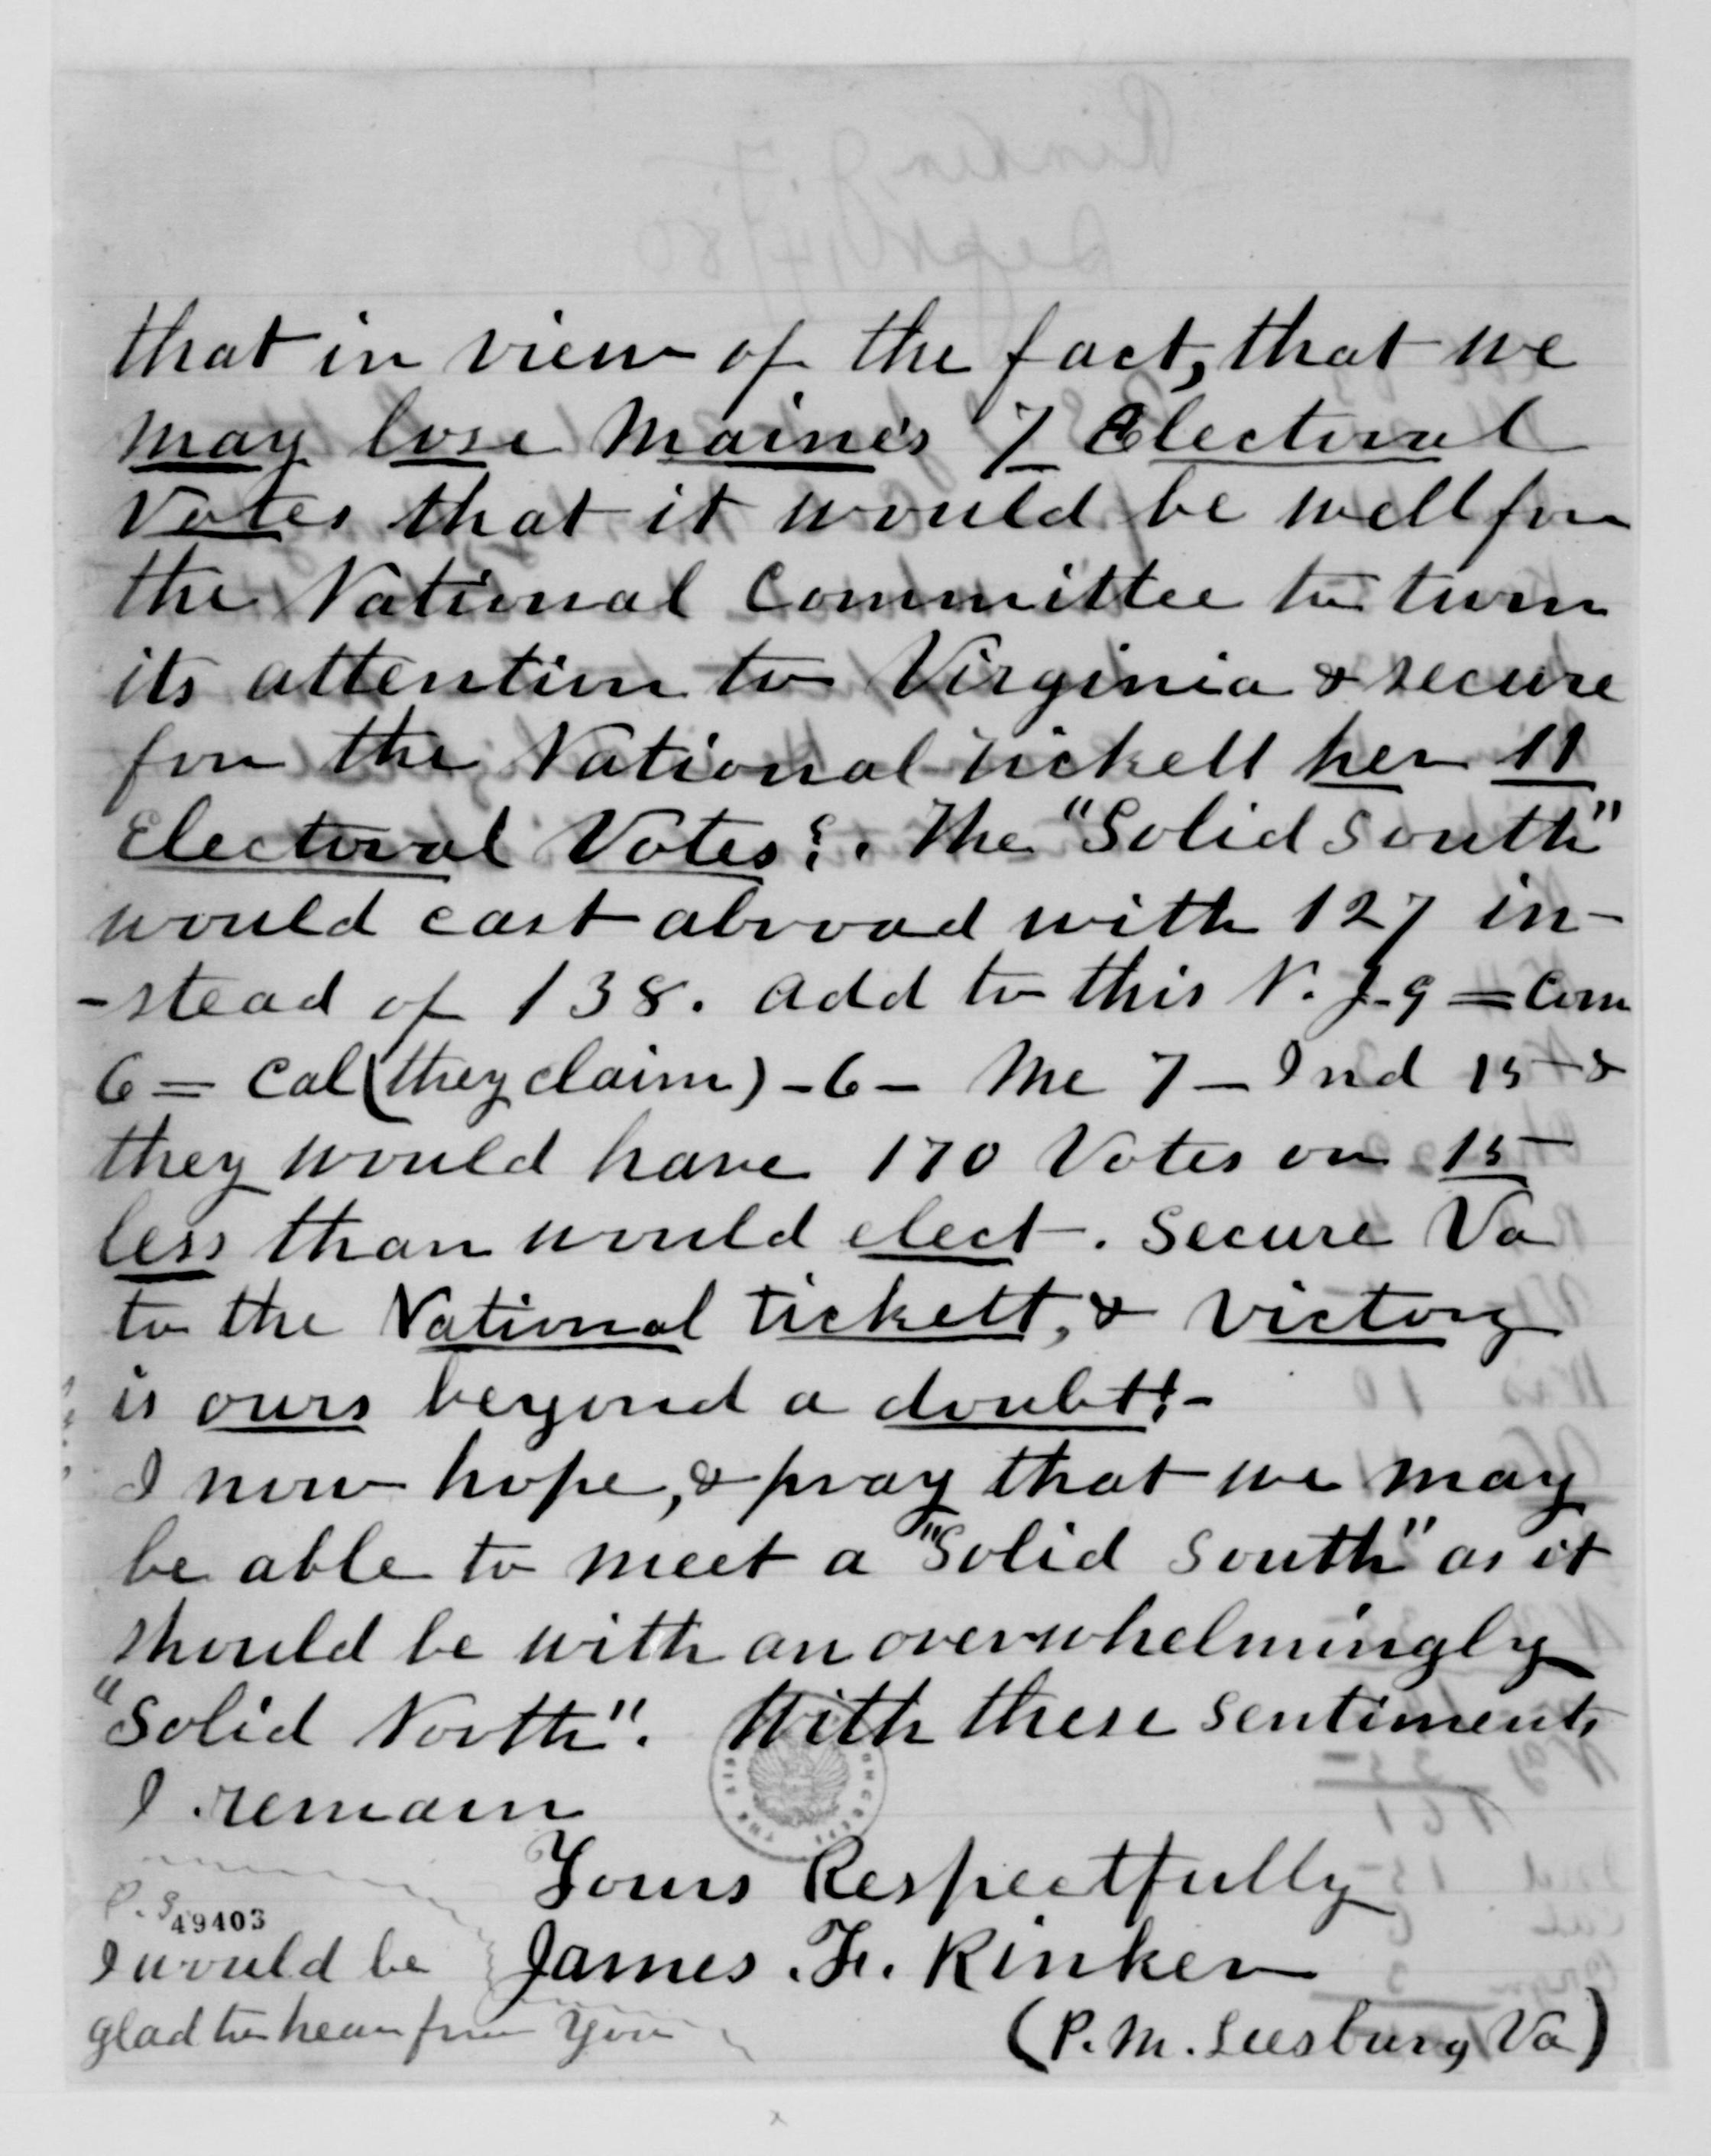 that in view of the fact, that we
may lose Maine's 7 Electoral
Votes that it would be well for
the National Committee to turn
its attention to Virginia & secure
for the National tickett her 11
Electoral Votes?. The "Solid South"
would cast abroad with 127 in-
-stead of 138. add to this N. J-9 = Conn
6 = Cal (they claim) - 6 - Me 7 - Ind 15 - &
they would have 170 Votes or 15
less than would elect. Secure Va
to the National tickett, & victory
is ours beyond a doubt!-
I now hope, & pray that we may
be able to meet a "Solid South" as it
should be with an overwhelmingly
"Solid North". With these sentiments
I remain
Yours Respectfully
James. F. Rinker
(P. M. Leesburg Va)
P. S
49403
I would be
glad to hear from you